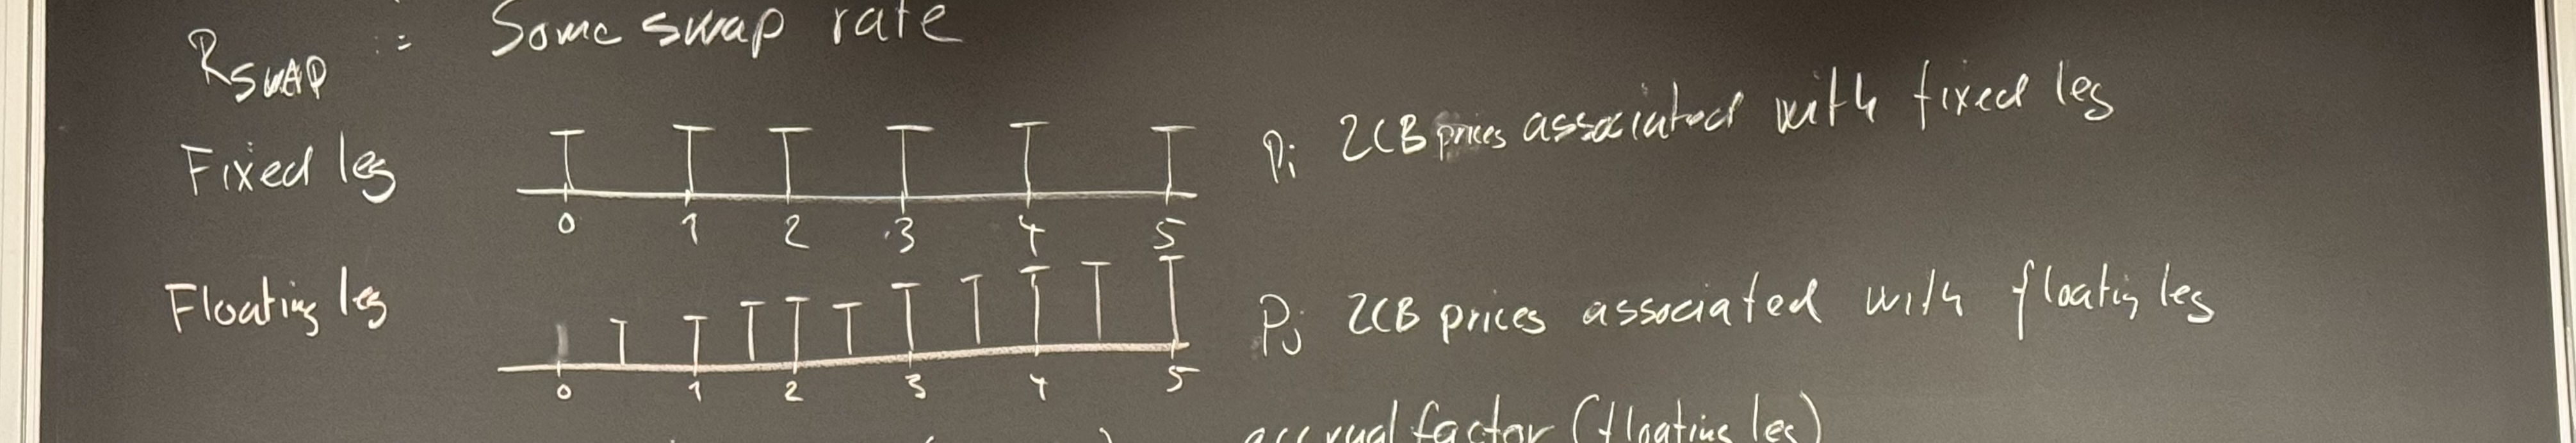 R SWAP := Some swap rate
Fixed leg
0 1 2 3 4 5
Pi ZCB prices associated with fixed leg
Floating leg
0 1 2 3 4 5
Pj ZCB prices associated with floating leg
accrual factor (floating leg)